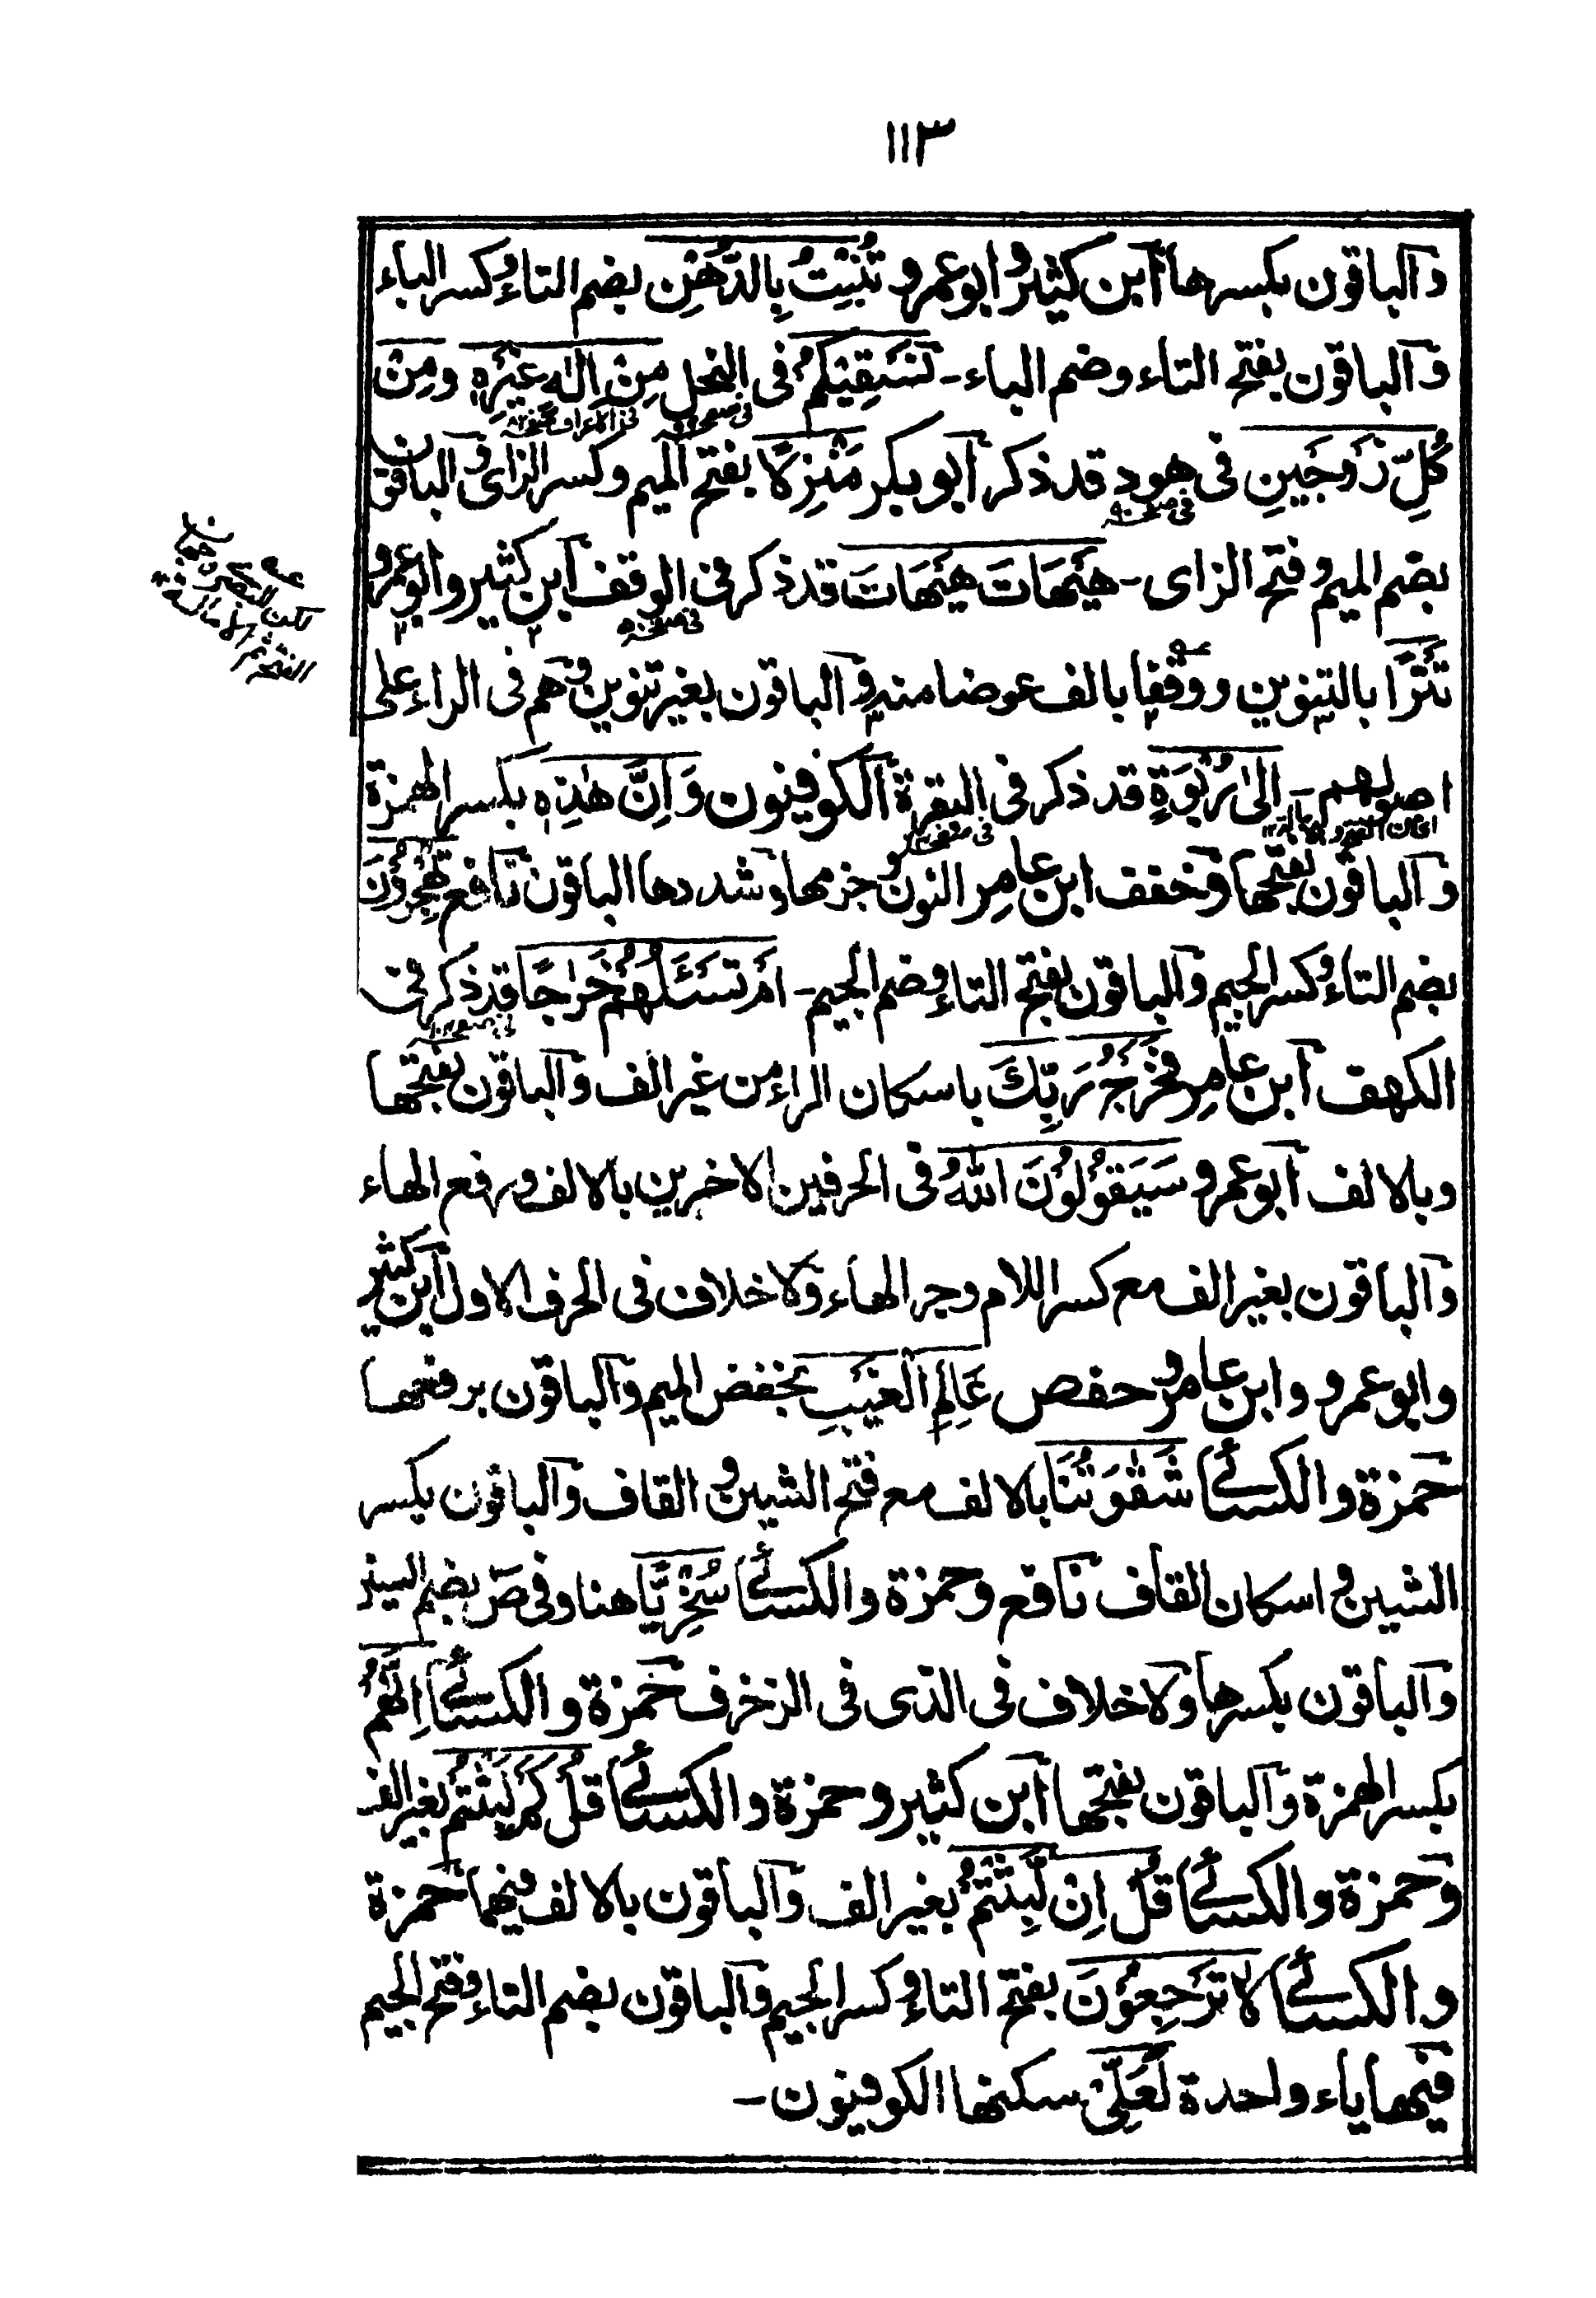 ١١٣
والباقون بكسرها ابن كثير وابو عمرو تُنْبِتُ بِالدُّهْنِ بضم التاء وكسر الباء
والباقون بفتح التاء وضم الباء - نُسْقِيْكُمْ فى النحل مِنْ اِلٰهٍ غَيْرِهٖ ومِنْ
كُلِّ زَوْجَيْنِ فى هود قد ذكر ابو بكر مَنْزِلًا بفتح الميم وكسر الزاى والباقون
بضم الميم وفتح الزاى - هَيْهَاتَ هَيْهَاتَ قد ذكر فى الوقف ابن كثير وابو عمرو
تَتْرًا بالتنوين ووقفا بالف عوضا منه والباقون بغير تنوين وهم فى الراء على
اصولهم - اِلٰى رَبْوَةٍ قد ذكر فى البقرة الكوفيون وَاِنَّ هٰذِهٖ بكسر الهمزة
والباقون بفتحها وخفف ابن عامر النون وجزمها وشددها الباقون نافع تُهْجِرُوْنَ
بضم التاء وكسر الجيم والباقون بفتح التاء وضم الجيم - اَمْ تَسْئَلُهُمْ خَرْاجًا قد ذكر فى
الكهف ابن عامر فَخَرْجُ رَبِّكَ باسكان الراء من غير الف والباقون بفتحها
وبالالف ابو عمرو سَيَقُوْلُوْنَ اللّٰهُ فى الحرفين الاخرين بالالف ورفع الهاء
والباقون بغير الف مع كسر اللام وجر الهاء ولا خلاف فى الحرف الاول ابن كثير
وابو عمرو وابن عامر وحفص عَالِمِ الْغَيْبِ بخفض الميم والباقون برفعها
حمزة والكسائى شَقٰوَتُنَا بالالف مع فتح الشين والقاف والباقون بكسر
الشين واسكان القاف نافع وحمزة والكسائى سُخْرِيًّا هنا وفى صٓ بضم السين
والباقون بكسرها ولا خلاف فى الذى فى الزخرف حمزة والكسائى اِنَّهُمْ
بكسر الهمزة والباقون بفتحها ابن كثير وحمزة والكسائى قُلْ كَمْ لَبِثْتُمْ بغير الف
وحمزة والكسائى قُلْ اِنْ لَّبِثْتُمْ بغير الف والباقون بالالف فيهما حمزة
والكسائى لا تَرْجِعُوْنَ بفتح التاء وكسر الجيم والباقون بضم التاء وفتح الجيم
فيها ياء واحدة لَعَلِّىْ سكنها الكوفيون -